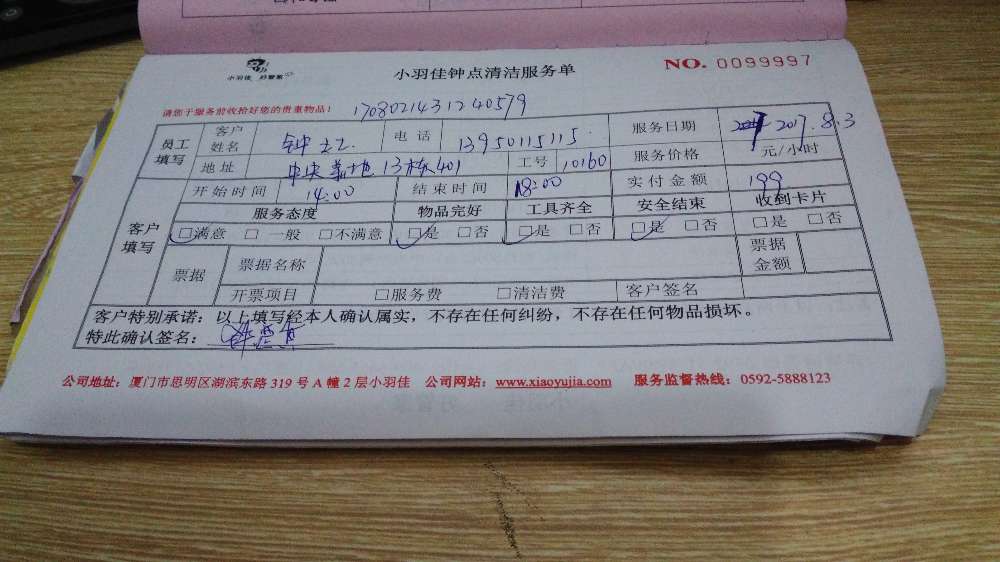 小羽佳 好管家
小羽佳钟点清洁服务单
NO. 0099997
请您于服务前收拾好您的贵重物品！ 1708021431240579
员工填写 客户姓名 钟 电话 13950115115 服务日期 2017.8.3
地址 中央 13栋401 工号 10160 服务价格 元/小时
客户填写 开始时间 14:00 结束时间 18:00 实付金额 199
服务态度 物品完好 工具齐全 安全结束 收到卡片
□满意 □一般 □不满意 □是 □否 □是 □否 □是 □否 □是 □否
票据 票据名称 票据金额
开票项目 □服务费 □清洁费 客户签名
客户特别承诺：以上填写经本人确认属实，不存在任何纠纷，不存在任何物品损坏。
特此确认签名：
公司地址：厦门市思明区湖滨东路 319 号 A 幢 2 层小羽佳 公司网站：www.xiaoyujia.com 服务监督热线：0592-5888123